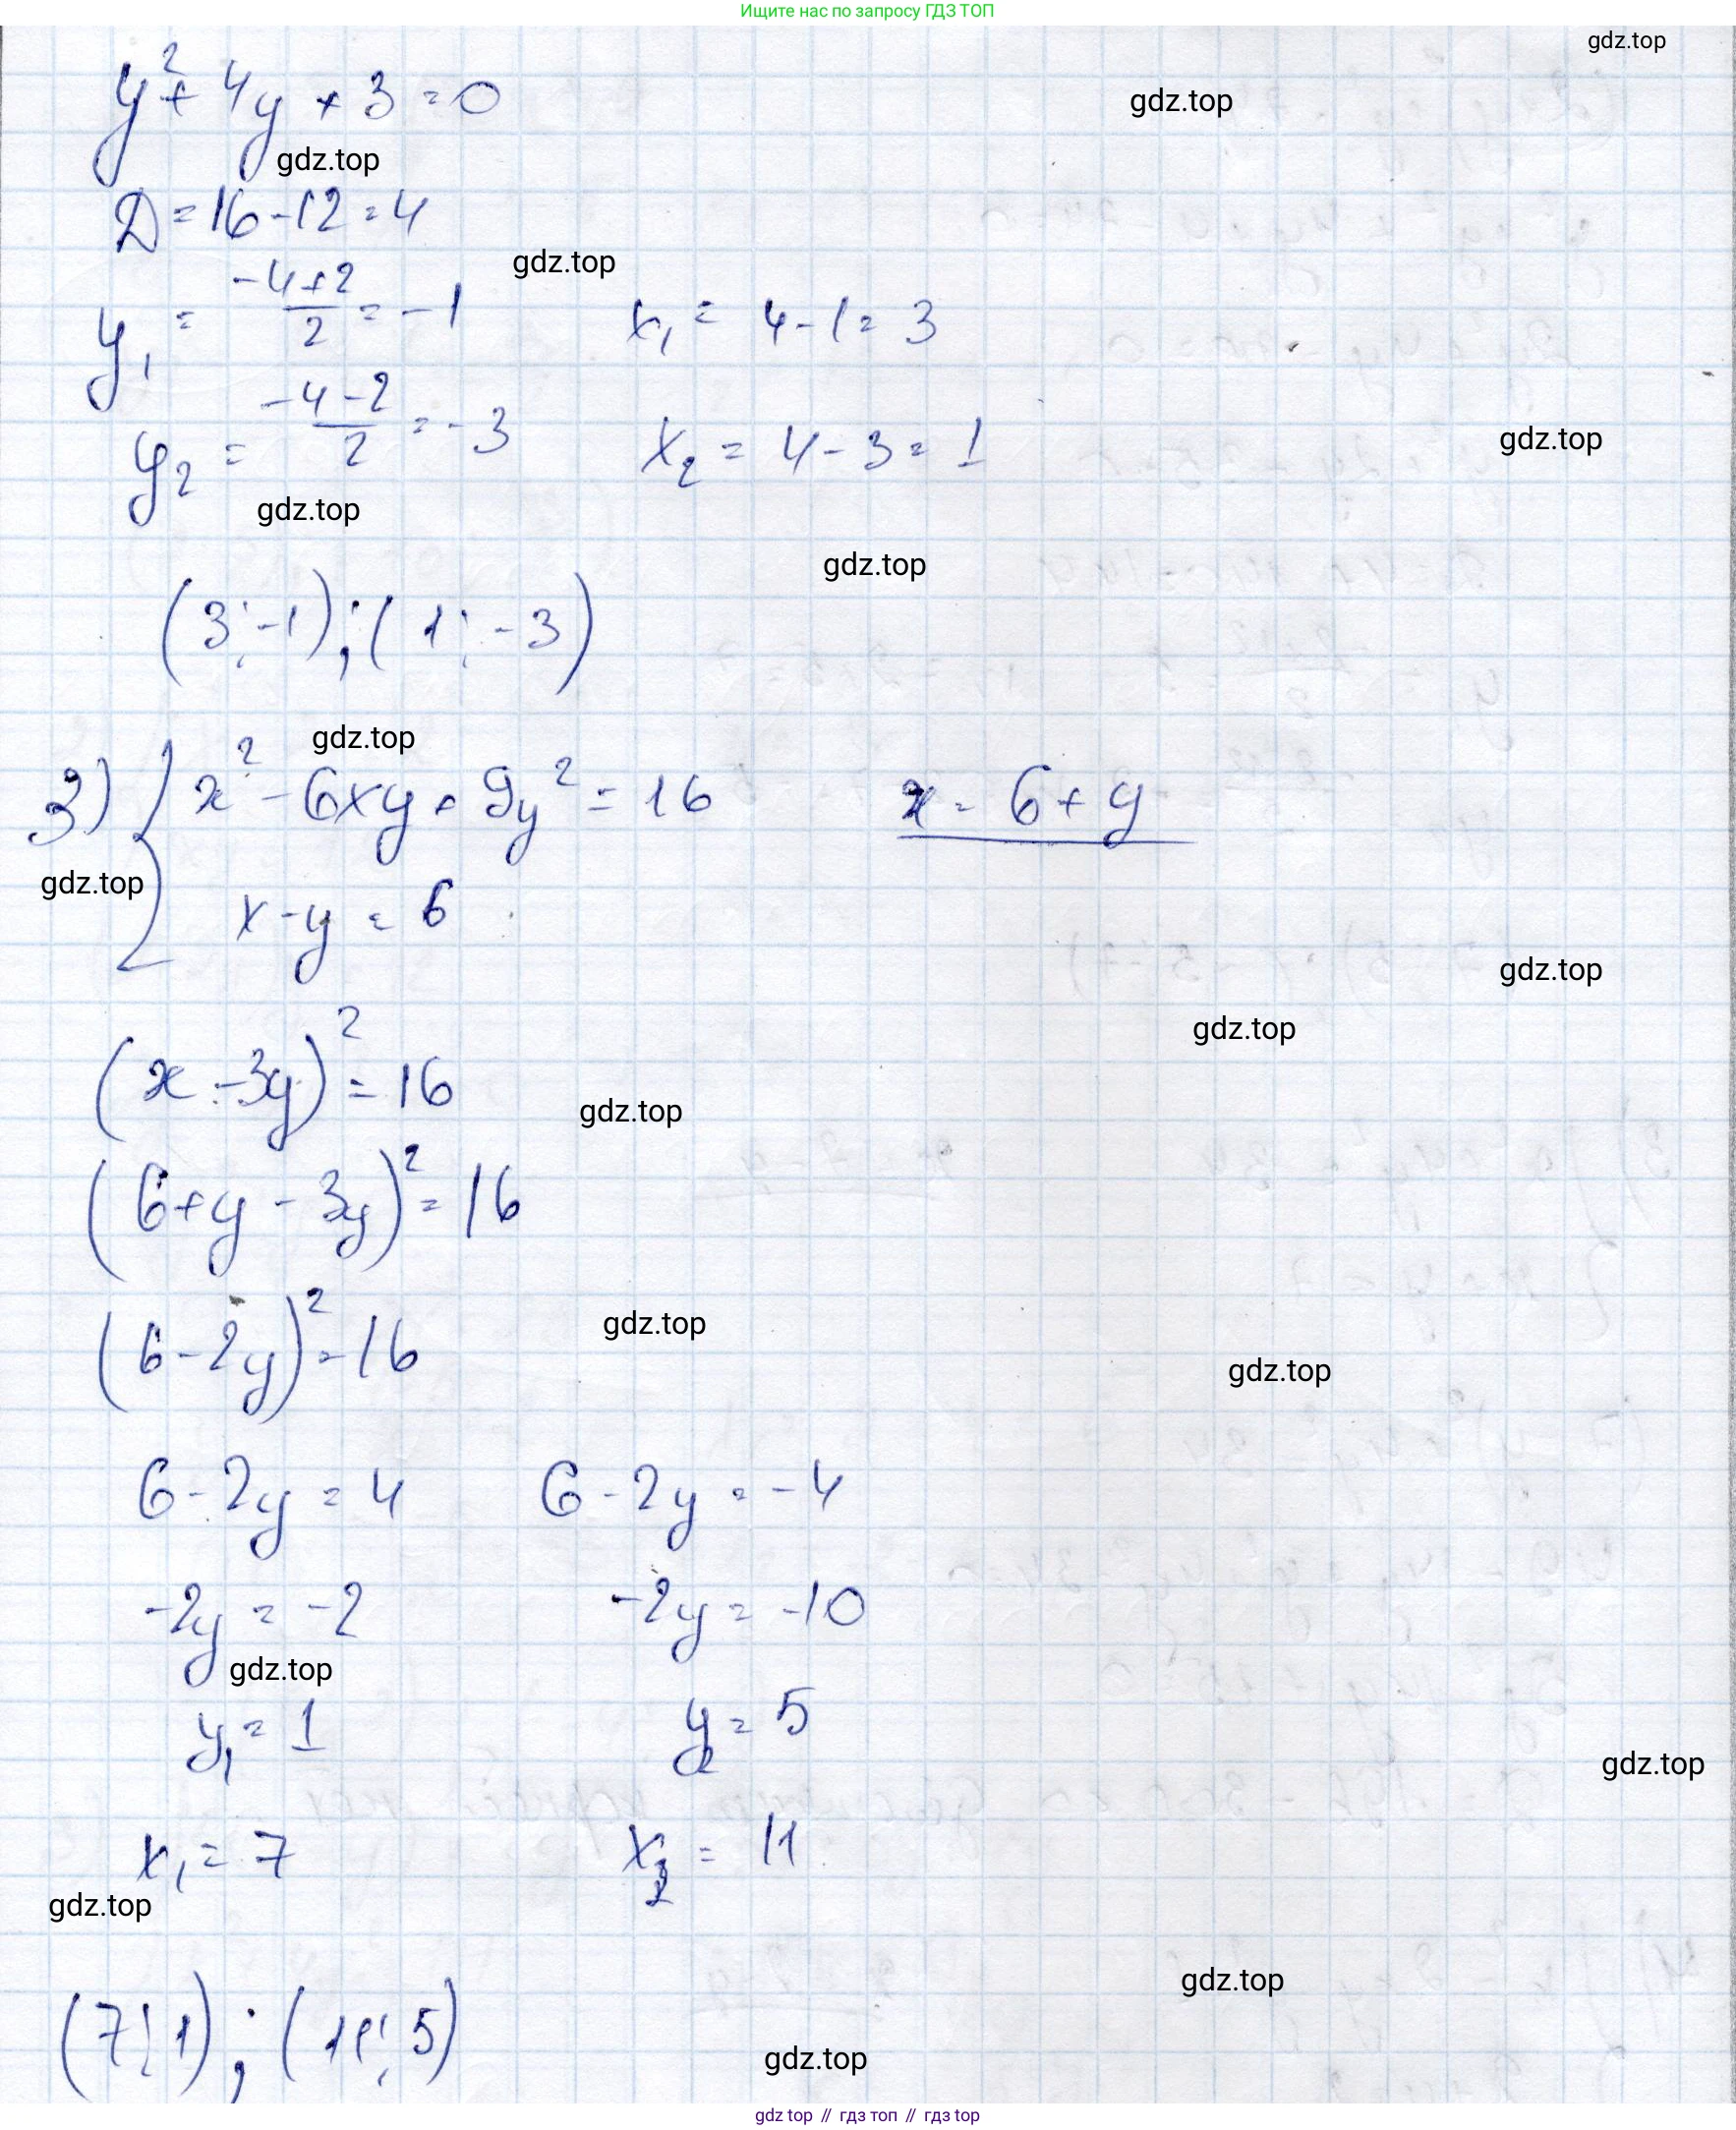 Ищите нас по запросу ГДЗ ТОП
gdz.top
y² + 4y + 3 = 0
gdz.top
gdz.top
D = 16 - 12 = 4
gdz.top
y₁ = (-4+2)/2 = -1    x₁ = 4 - 1 = 3
y₂ = (-4-2)/2 = -3    x₂ = 4 - 3 = 1
gdz.top
gdz.top
gdz.top
(3; -1); (1; -3)
gdz.top
3) { x² - 6xy + 9y² = 16    x = 6 + y
gdz.top
x - y = 6
gdz.top
gdz.top
(x - 3y)² = 16
gdz.top
(6 + y - 3y)² = 16
(6 - 2y)² = 16
gdz.top
gdz.top
6 - 2y = 4    6 - 2y = -4
-2y = -2    -2y = -10
gdz.top
y₁ = 1    y₂ = 5
gdz.top
x₁ = 7    x₂ = 11
gdz.top
gdz.top
(7; 1); (11; 5)
gdz.top
gdz top // гдз топ // гдз top